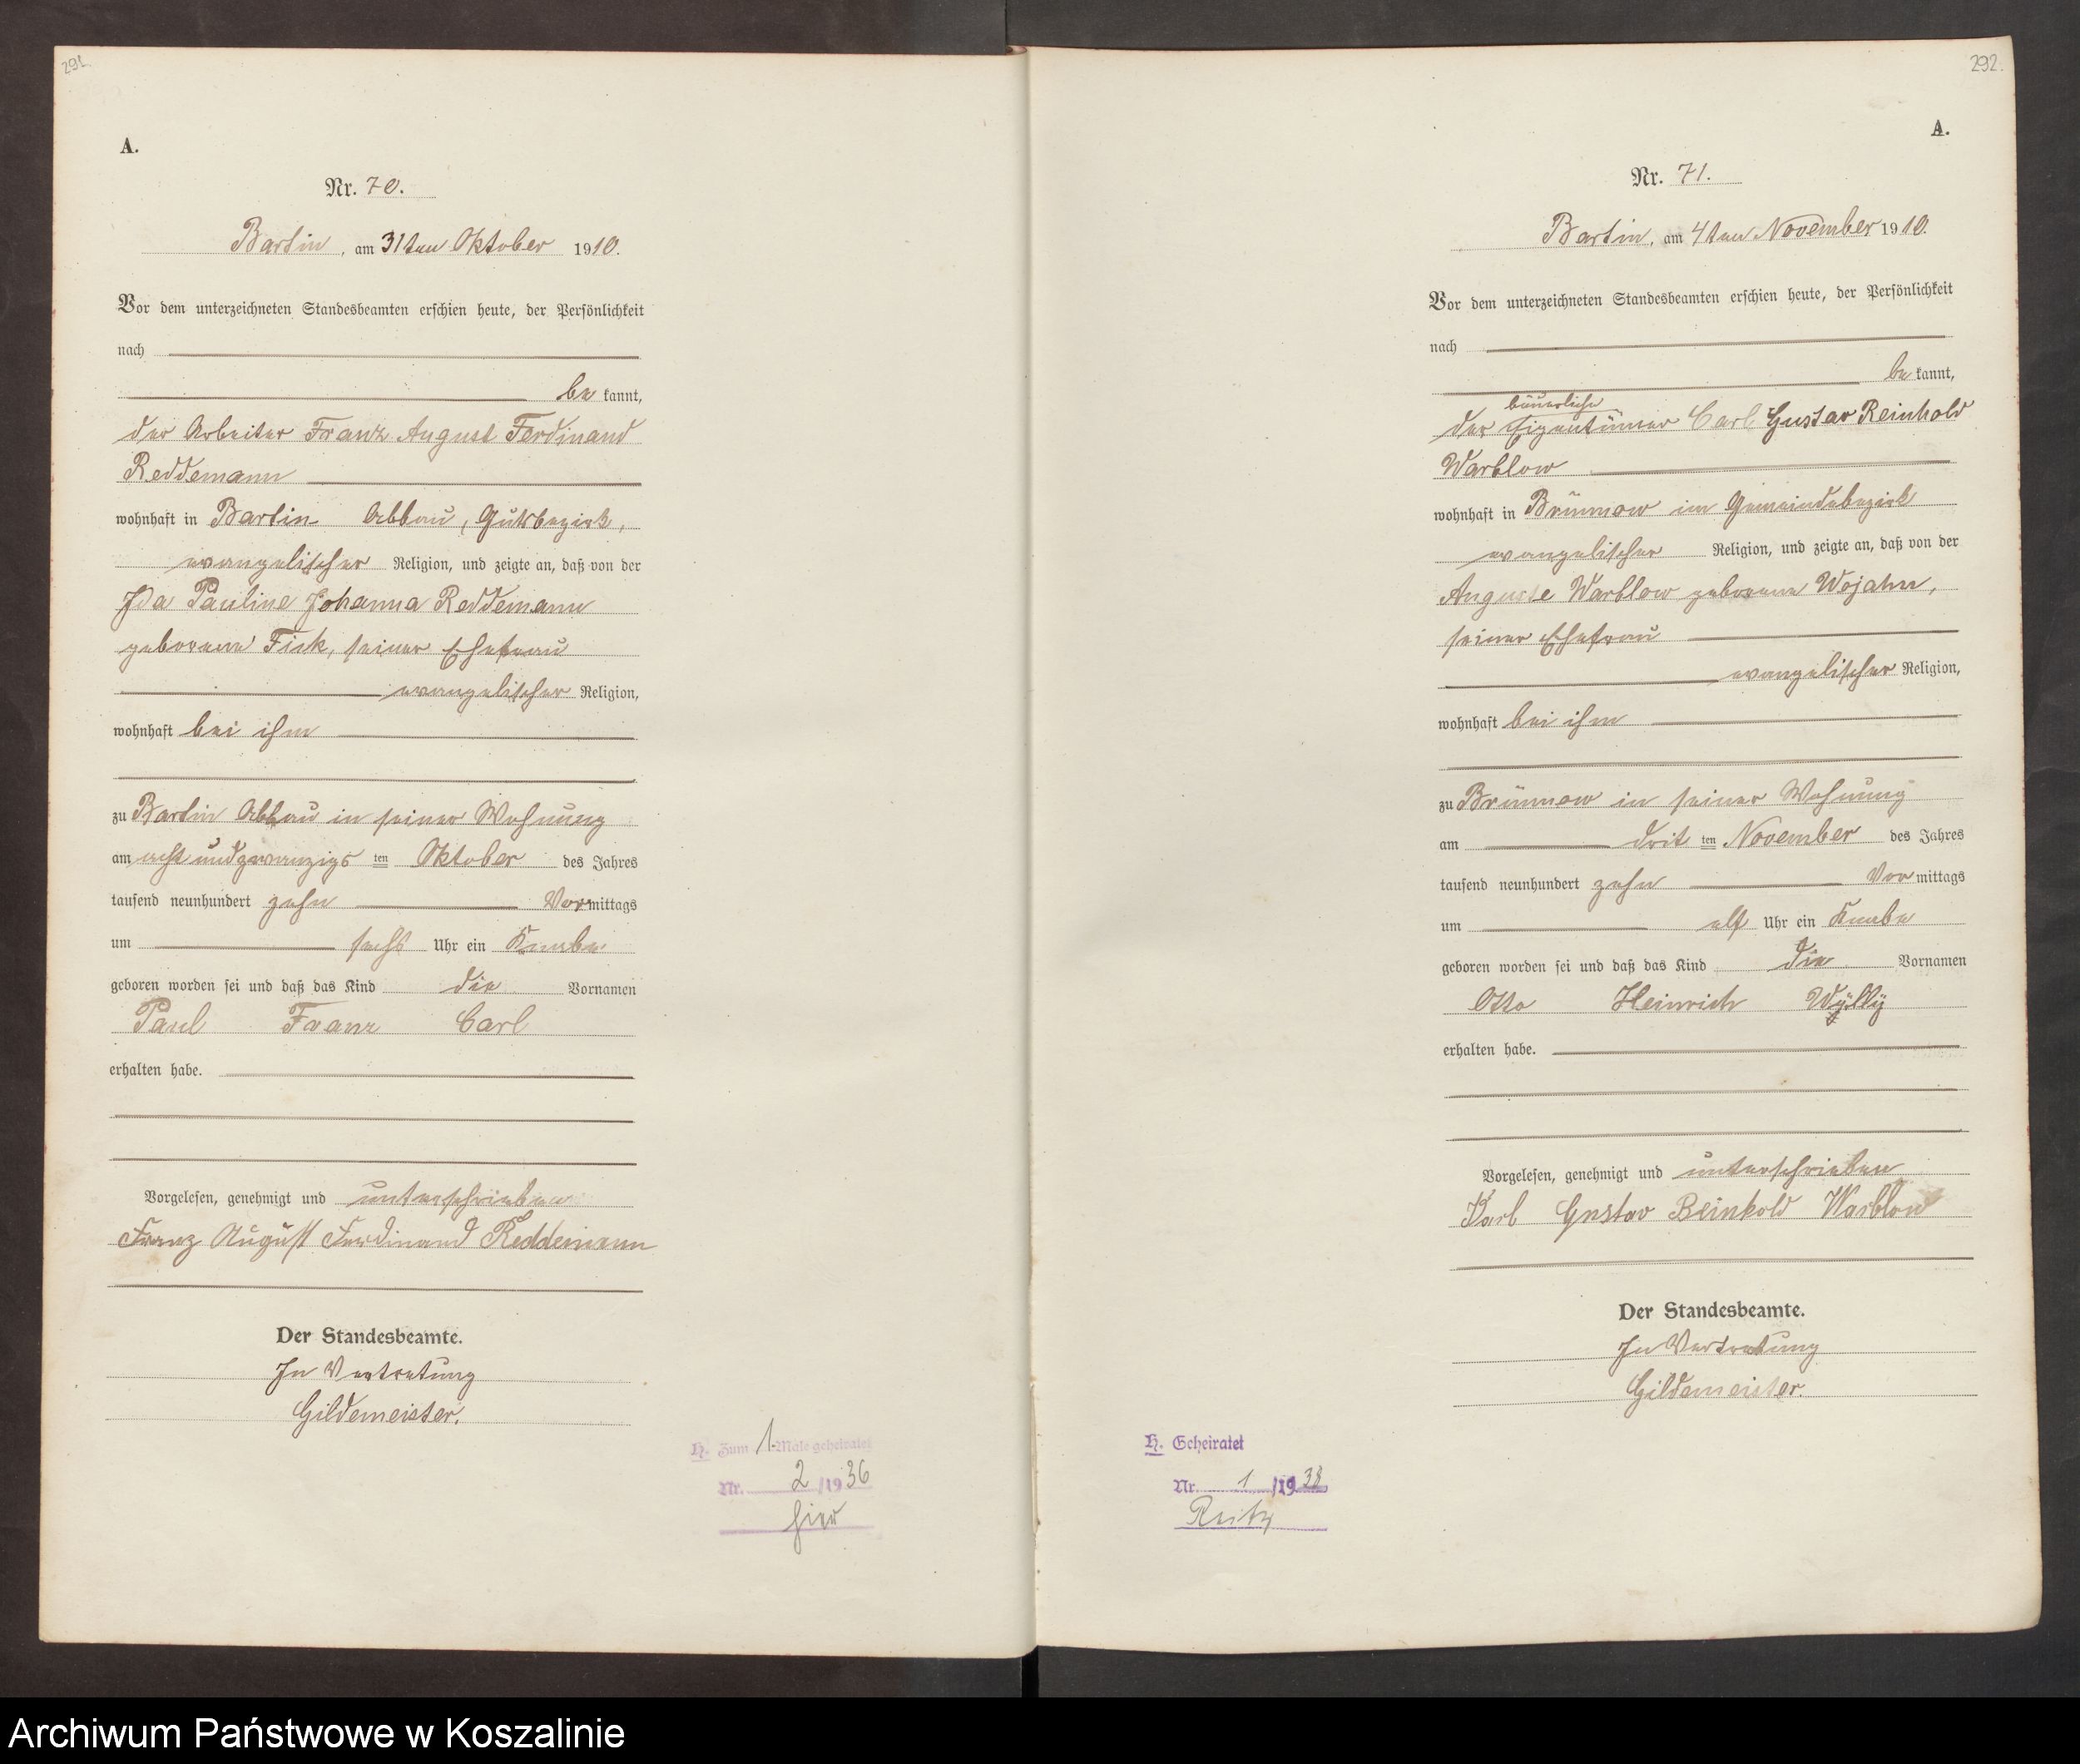 291.
A.
Nr. 70.
Bartin, am 31ten Oktober 1910.
Vor dem unterzeichneten Standesbeamten erschien heute, der Persönlichkeit
nach
be kannt,
der Arbeiter Franz August Ferdinand
Reddemann
wohnhaft in Bartin Abbau, Gutsbezirk,
evangelischer Religion, und zeigte an, daß von der
Ida Pauline Johanna Reddemann
geborene Fick, seiner Ehefrau
evangelischer Religion,
wohnhaft bei ihm
zu Bartin Abbau in seiner Wohnung
am acht und zwanzigs ten Oktober des Jahres
tausend neunhundert zehn Vormittags
um sechs Uhr ein Knabe
geboren worden sei und daß das Kind die Vornamen
Paul Franz Carl
erhalten habe.
Vorgelesen, genehmigt und unterschrieben
Franz August Ferdinand Reddemann
Der Standesbeamte.
In Vertretung
Gildemeister.
H. Zum 1. Male geheiratet
Nr. 2 /1936
hier
292.
A.
Nr. 71.
Bartin, am 4ten November 1910.
Vor dem unterzeichneten Standesbeamten erschien heute, der Persönlichkeit
nach
be kannt,
bäuerliche
der Eigentümer Carl Gustav Reinhold
Warblow
wohnhaft in Brünnow im Gemeindebezirk
evangelischer Religion, und zeigte an, daß von der
Auguste Warblow geborene Wojahn,
seiner Ehefrau
evangelischer Religion,
wohnhaft bei ihm
zu Brünnow in seiner Wohnung
am drit ten November des Jahres
tausend neunhundert zehn Vor mittags
um elf Uhr ein Knabe
geboren worden sei und daß das Kind die Vornamen
Otto Heinrich Wylly
erhalten habe.
Vorgelesen, genehmigt und unterschrieben
Karl Gustav Reinhold Warblow
Der Standesbeamte.
In Vertretung
Gildemeister.
H. Geheiratet
Nr. 1 /1938
Reitz
Archiwum Państwowe w Koszalinie